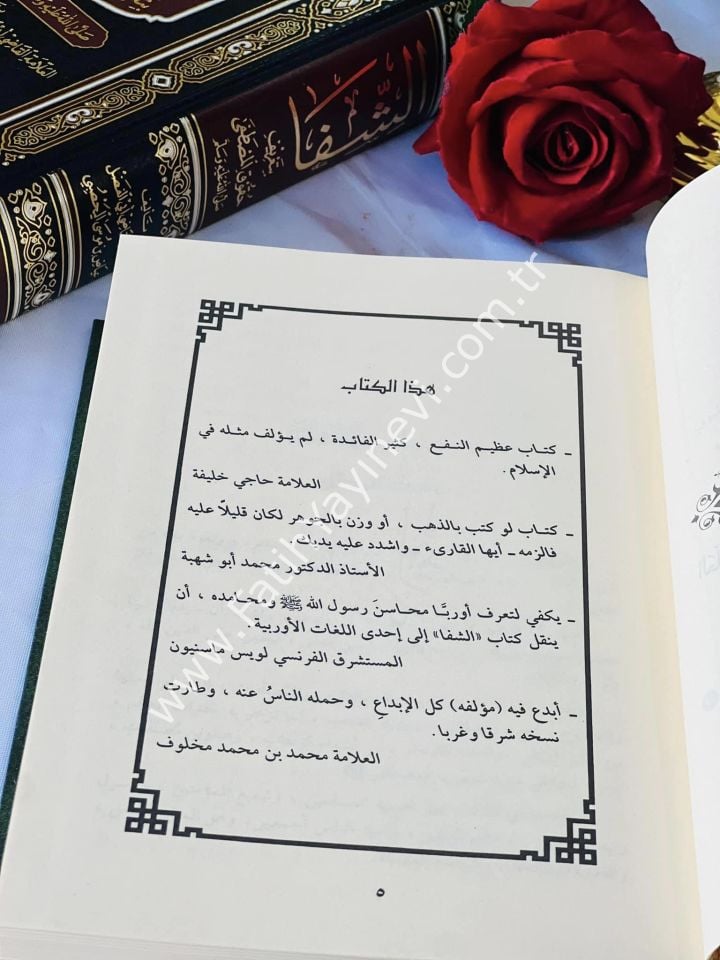 الشفا
بتعريف
حقوق المصطفى
هذا الكتاب
- كتاب عظيم النفع ، كثير الفائدة ، لم يؤلف مثله في
الإسلام.
العلامة حاجي خليفة
- كتاب لو كتب بالذهب ، أو وزن بالجوهر لكان قليلاً عليه
فالزمه - أيها القارىء - واشدد عليه يديك.
الأستاذ الدكتور محمد أبو شهبة
- يكفي لتعرف أوربَّا محاسنَ رسول الله ﷺ ومحامده ، أن
ينقل كتاب «الشفا» إلى إحدى اللغات الأوربية.
المستشرق الفرنسي لويس ماسنيون
- أبدع فيه (مؤلفه) كل الإبداعِ ، وحمله الناسُ عنه ، وطارت
نسخه شرقا وغربا.
العلامة محمد بن محمد مخلوف
٥
www.FatihYayinevi.com.tr